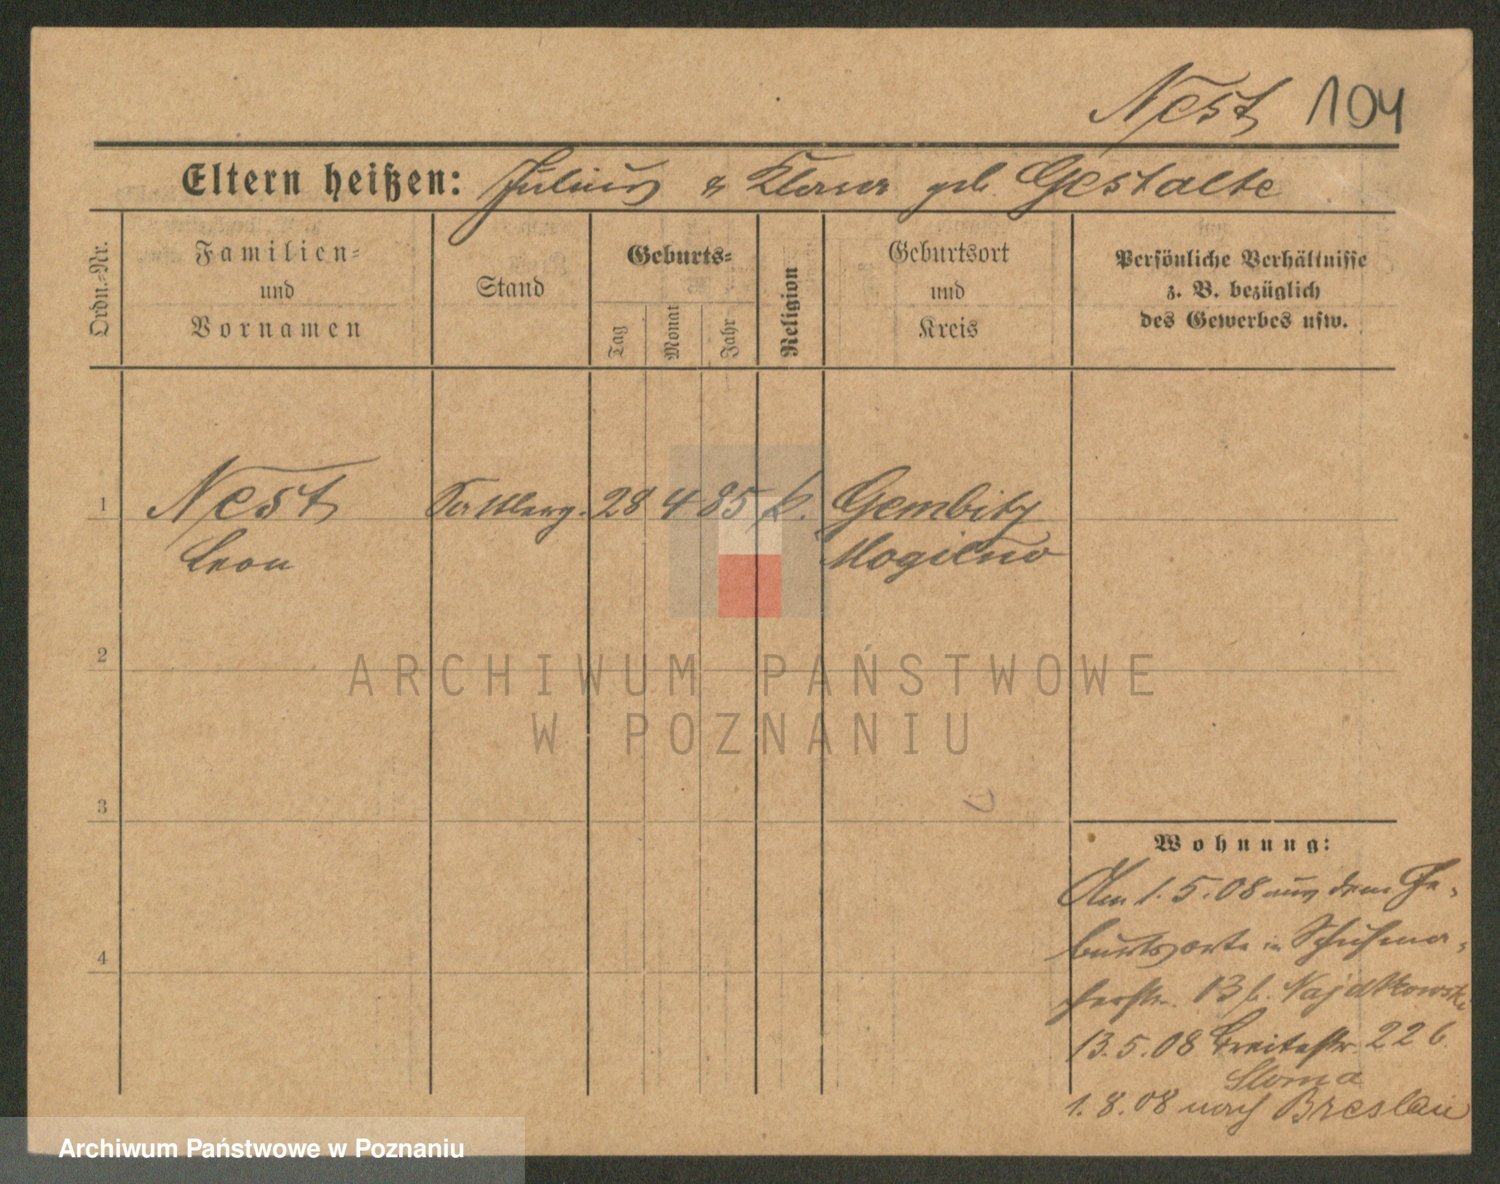 Nest 104
Eltern heißen: Julius & Klara geb. Gestalte
Ordn.-Nr.
Familien-
und
Vornamen
Stand
Geburts-
Tag
Monat
Jahr
Religion
Geburtsort
und
Kreis
Persönliche Verhältnisse
z. B. bezüglich
des Gewerbes usw.
1 Nest Sattlerg. 28 4 85 k. Gembitz
Leon Mogilno
2
ARCHIWUM PAŃSTWOWE
W POZNANIU
3
Wohnung:
Am 1.5.08 aus dem Ge-
burtsorte in Schuhma-
4
cherstr. 13 b. Najdkowski
13.5.08 Breitestr. 22 b.
Sloma
1.8.08 nach Breslau
Archiwum Państwowe w Poznaniu